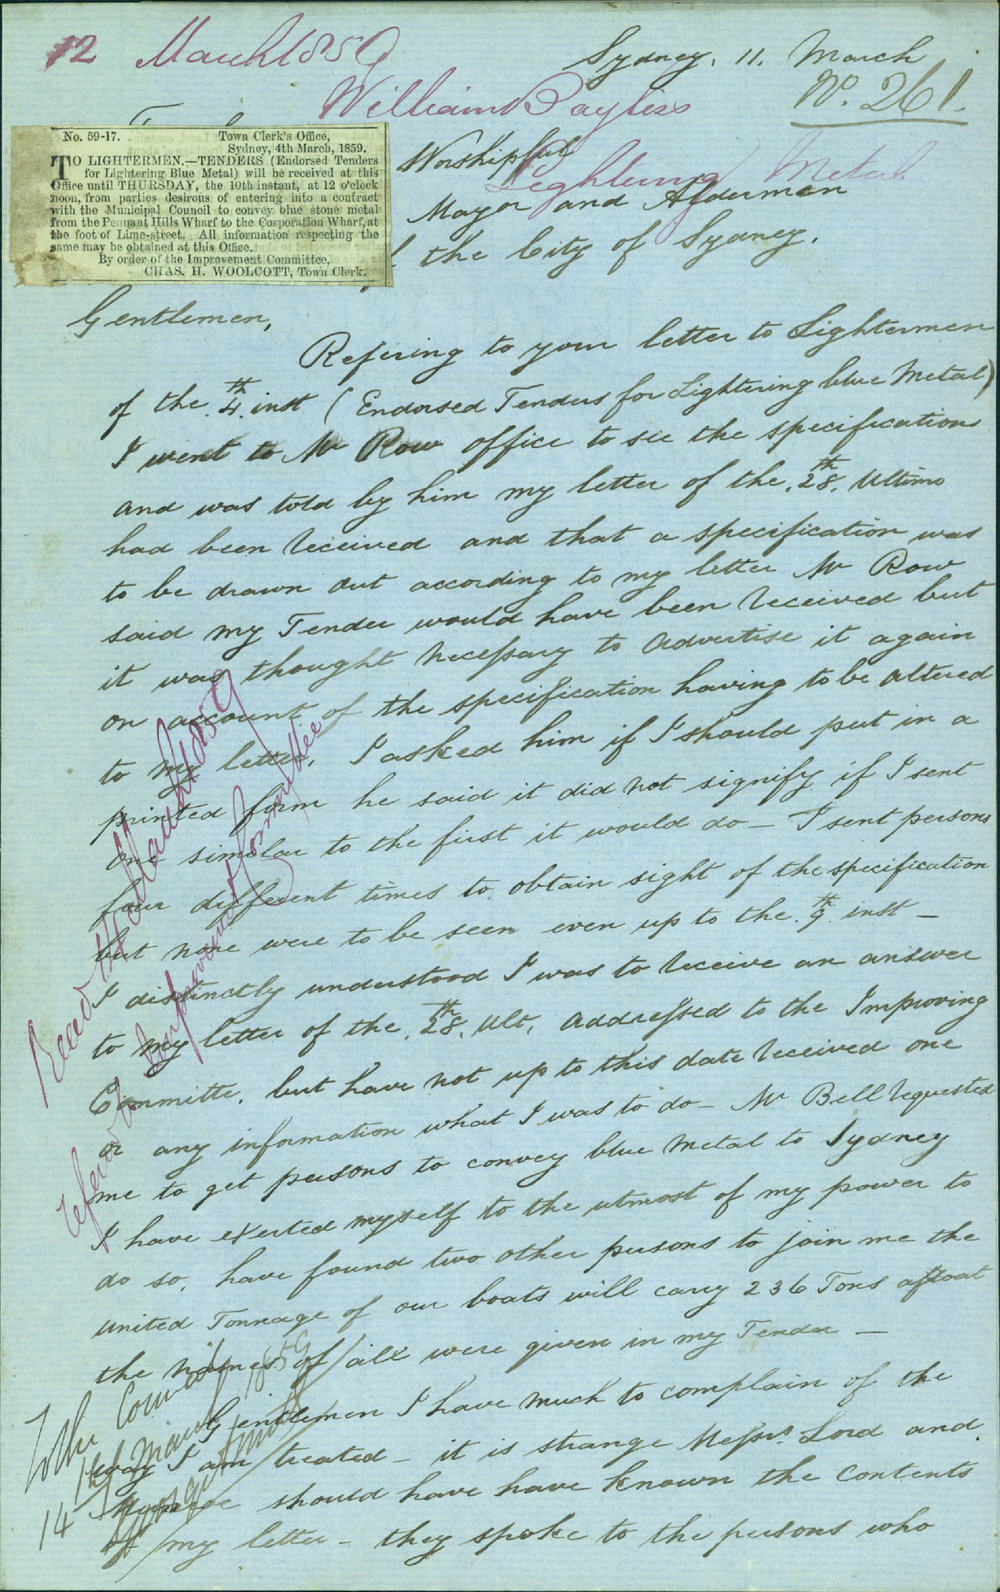 12 March 1859
Sydney. 11. March
No. 261.
William Bayliss
Lightering Metal
No. 59-17. Town Clerk's Office,
Sydney, 4th March, 1859.
TO LIGHTERMEN.—TENDERS (Endorsed Tenders
for Lightering Blue Metal) will be received at this
Office until THURSDAY, the 10th instant, at 12 o'clock
noon, from parties desirous of entering into a contract
with the Municipal Council to convey blue stone metal
from the Pennant Hills Wharf to the Corporation Wharf, at
the foot of Lime-street. All information respecting the
same may be obtained at this Office.
By order of the Improvement Committee,
CHAS. H. WOOLCOTT, Town Clerk.
Worshipful
Mayor and Aldermen
the City of Sydney.
Gentlemen,
Refering to your letter to Lightermen
of the 4th inst (Endorsed Tenders for Lightering blue Metal)
I went to Mr Row office to see the specifications
and was told by him my letter of the 28th Ultimo
had been received and that a specification was
to be drawn out according to my letter Mr Row
said my Tender would have been received but
it was thought necessary to advertise it again
on account of the specification having to be altered
to my letter, I asked him if I should put in a
printed form he said it did not signify if I sent
one similar to the first it would do— I sent persons
four different times to obtain sight of the specification
but none were to be seen even up to the 9th inst—
I distinctly understood I was to receive an answer
to my letter of the 28th Ult, addressed to the Improving
Committe, but have not up to this date received one
or any information what I was to do— Mr Bell requested
me to get persons to convey blue metal to Sydney
I have exerted myself to the utmost of my power to
do so, have found two other persons to join me the
united Tonnage of our boats will carry 236 Tons afloat
the names of all were given in my Tender—
Gentlemen I have much to complain of the
way I am treated— it is strange Messrs. Lord and
should have have known the contents
of my letter— they spoke to the persons who
Read 14 March 1859
refered Improvement Committee
To the Council
14th March 1859
14